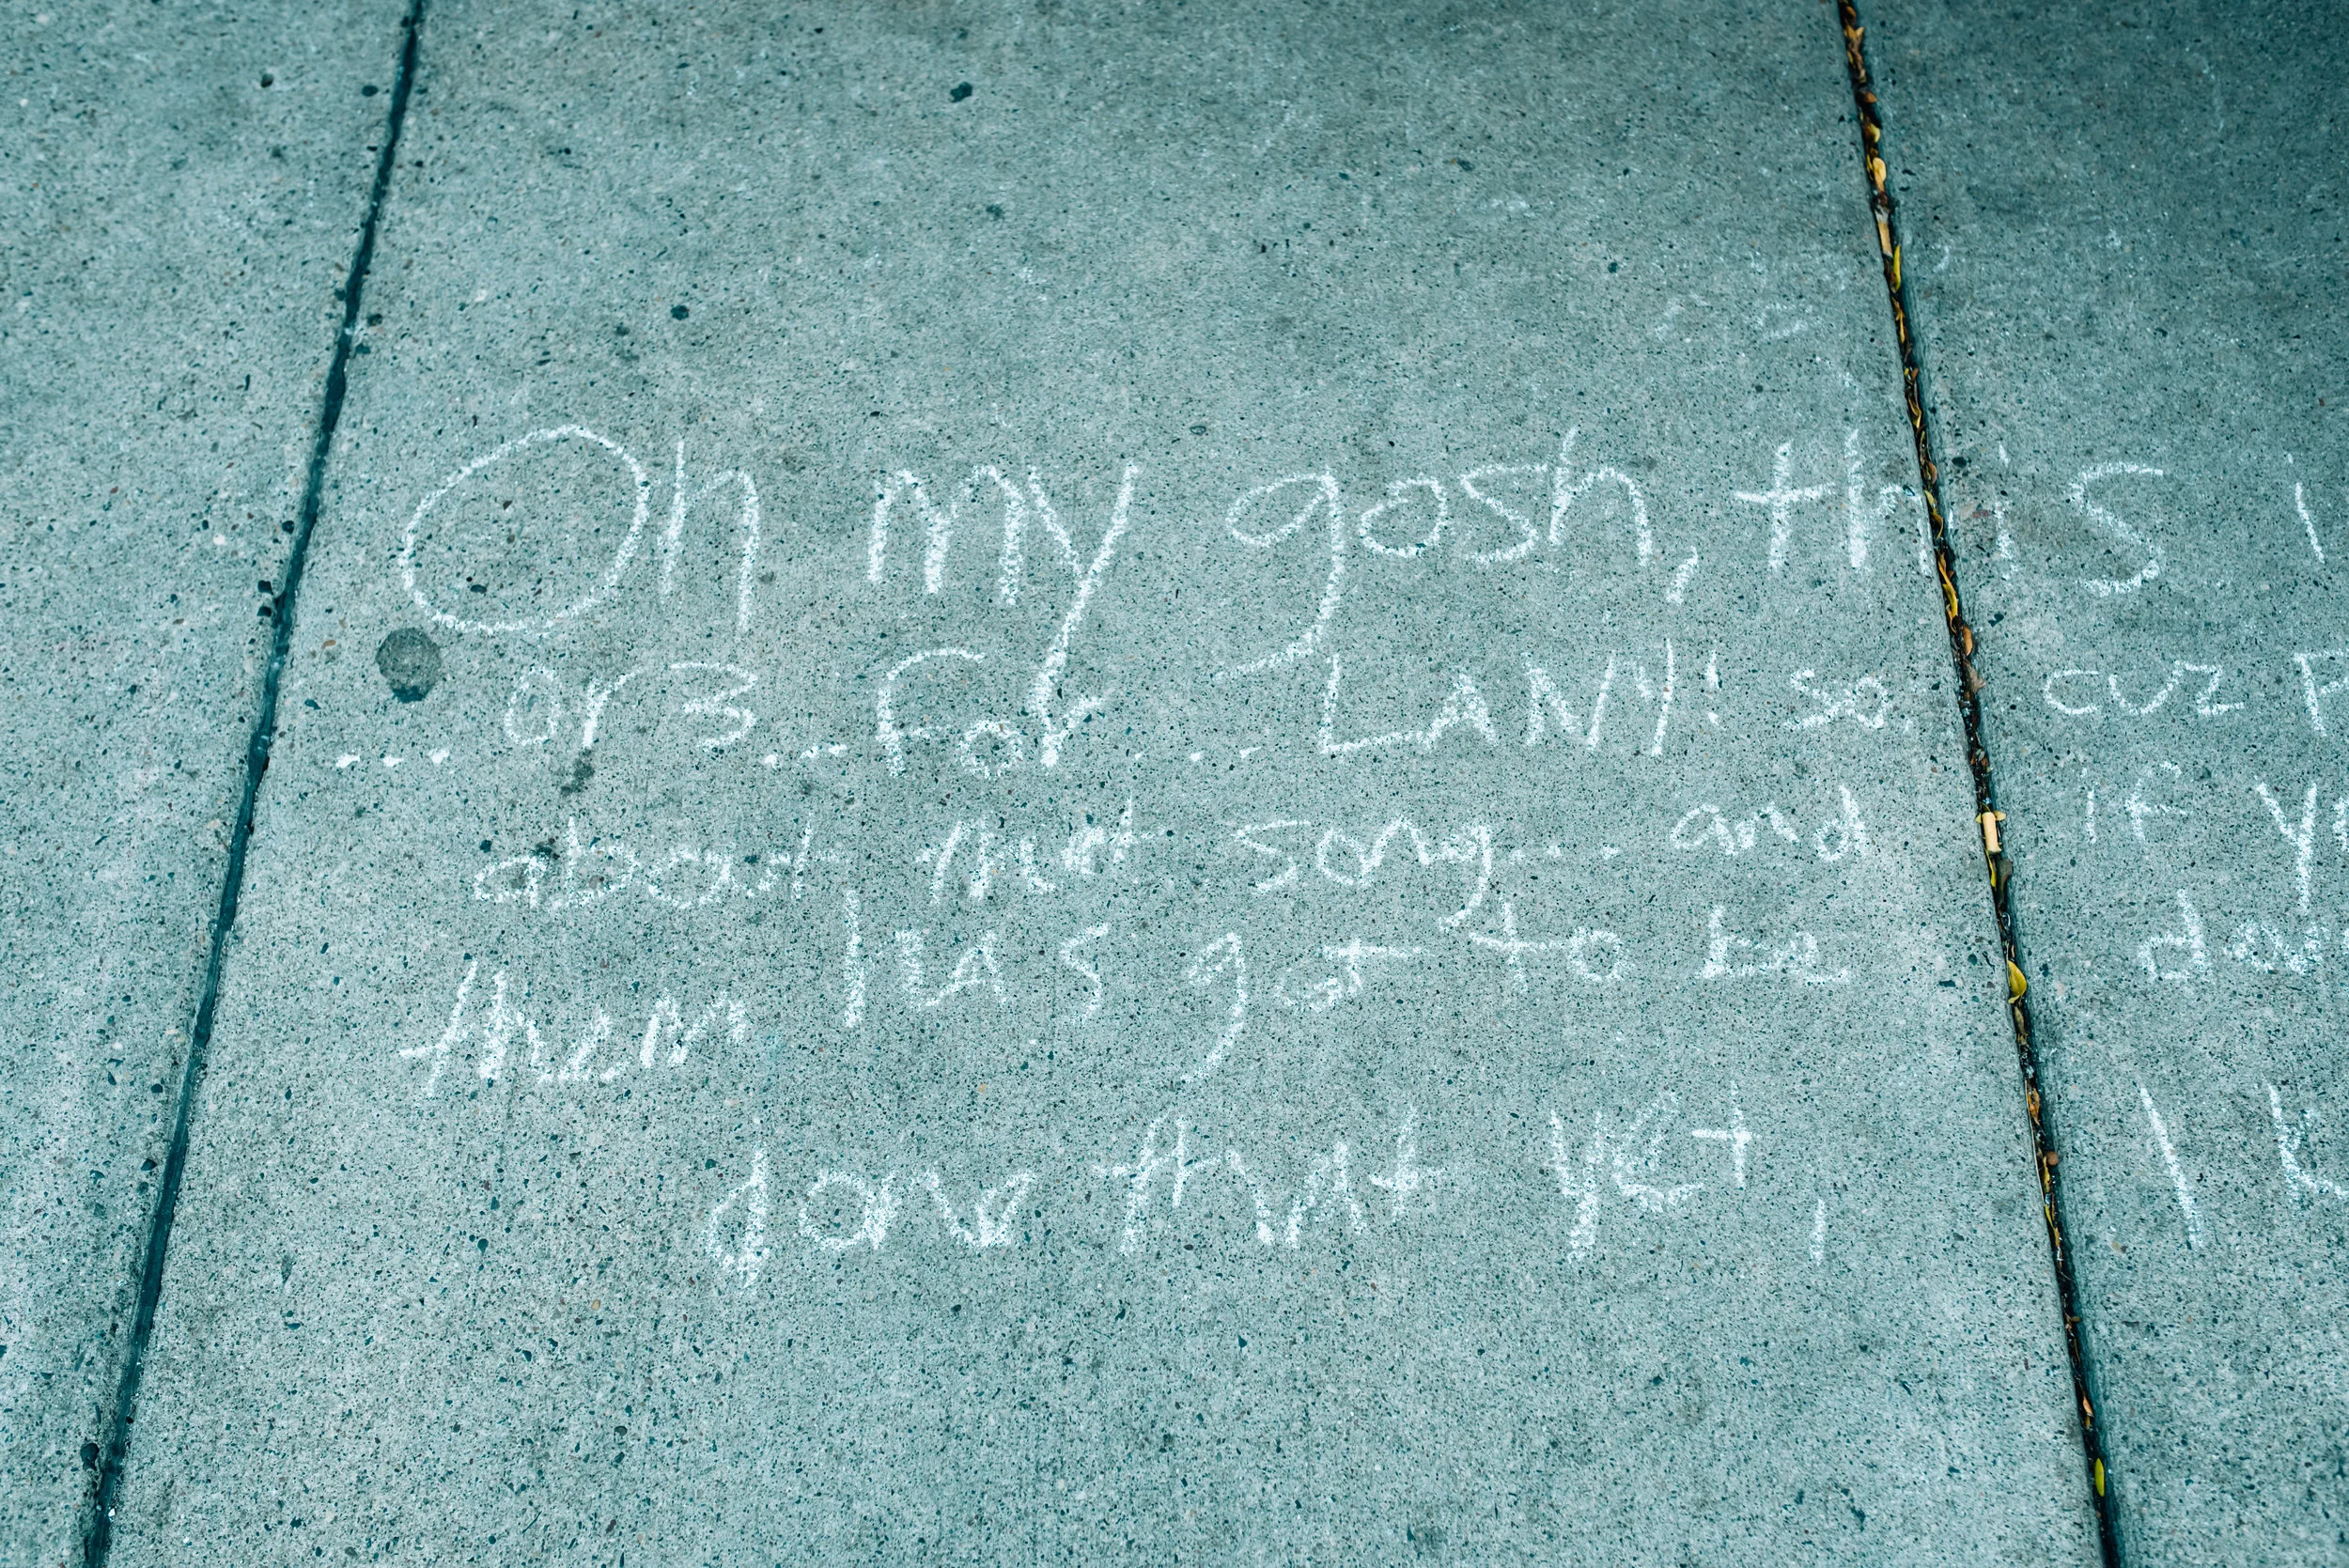 Oh my gosh, this i
... ors... for... LANY! so cuz
about that song... and if y
them has got to be
done that yet, I